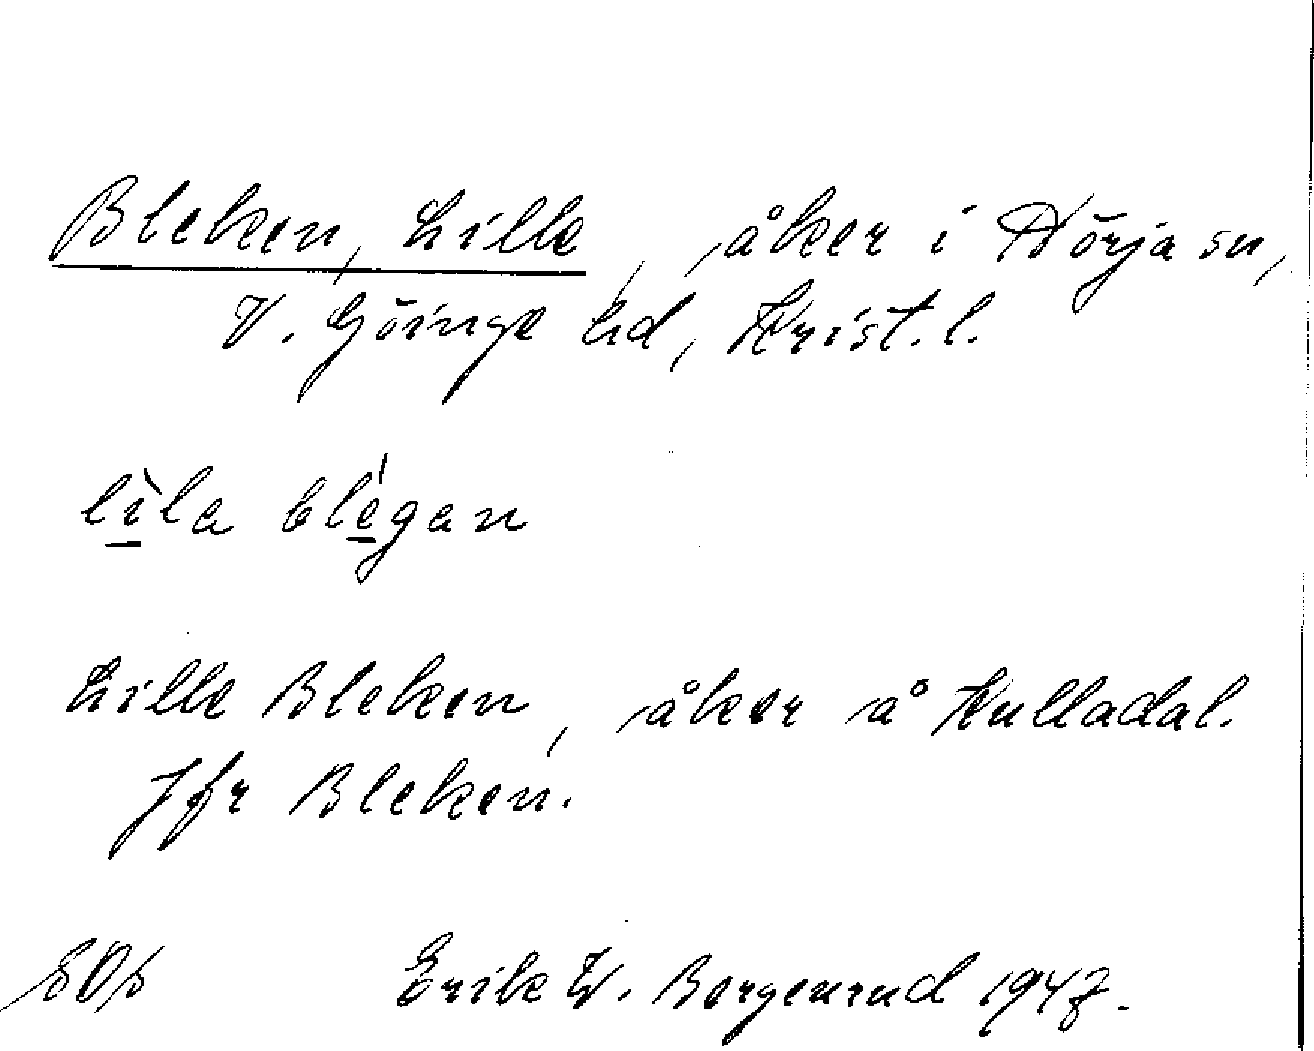 Bleken, Lille, åker i Hörja sn,
V. Göinge hd, Krist. l.
lìla blégan
Lille Bleken, åker å Kulladal.
Jfr Bleken.
Erik W. Bergenrud 1947.